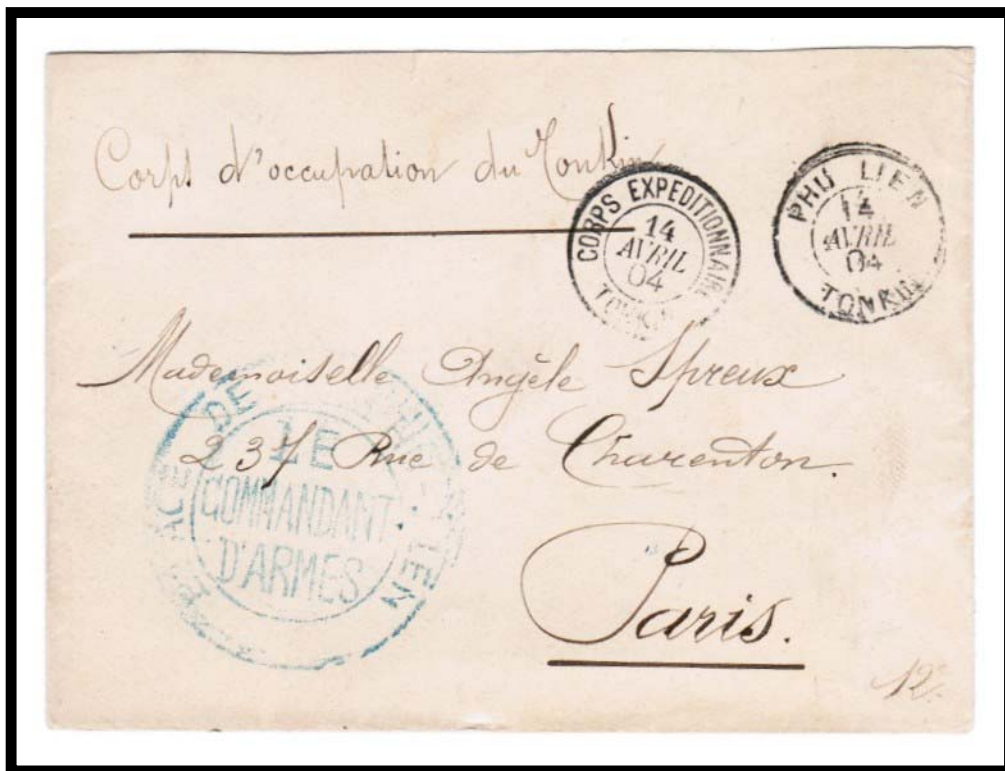 Corps d'occupation du Tonkin
CORPS EXPEDITIONNAIRE
14
AVRIL
04
TONKIN
PHU LIEN
14
AVRIL
04
TONKIN
Mademoiselle Angèle Spreux
237 Rue de Charenton.
Paris.
PLACE DE PHU-LIEN
LE
COMMANDANT
D'ARMES
12